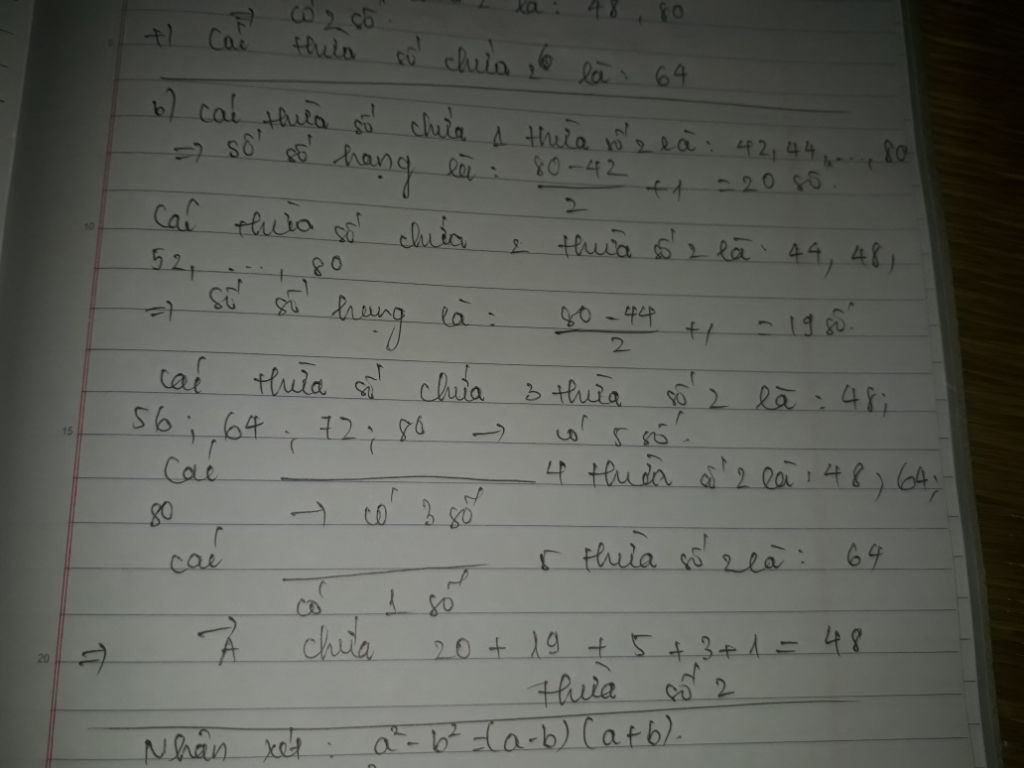 ⇒ có 2 số. 2 là: 48, 80
+) Các thừa số chứa 2⁶ là: 64
b) Các thừa số chứa 1 thừa số 2 là: 42, 44, ..., 80
⇒ số số hạng là: (80 - 42)/2 + 1 = 20 số.
Các thừa số chứa 2 thừa số 2 là: 44, 48,
52, ..., 80
⇒ số số hạng là: (80 - 44)/2 + 1 = 19 số.
Các thừa số chứa 3 thừa số 2 là: 48;
56; 64; 72; 80 → có 5 số.
Các ——— 4 thừa số 2 là: 48, 64;
80 → có 3 số
Các ——— 5 thừa số 2 là: 64
có 1 số
⇒ A chứa 20 + 19 + 5 + 3 + 1 = 48
thừa số 2
Nhận xét: a² - b² = (a-b)(a+b).